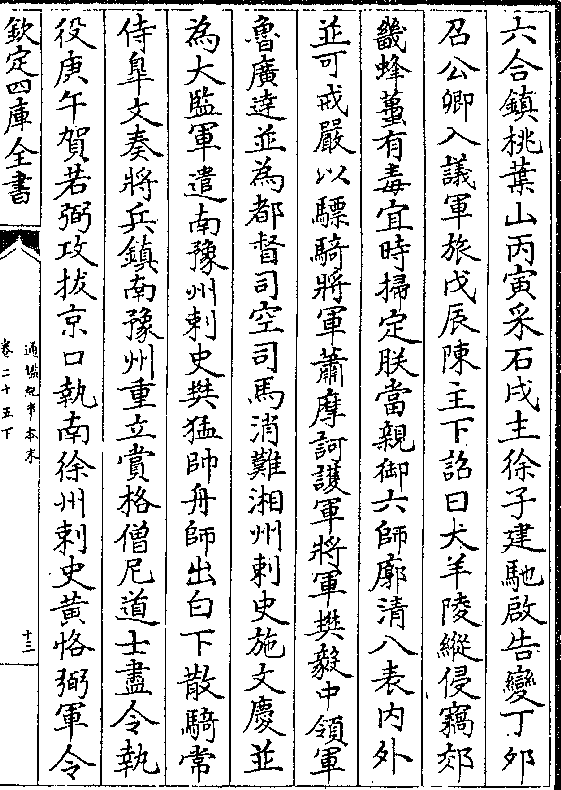 六合鎮桃葉山丙寅采石戍主徐子建馳啟告變丁卯
召公卿入議軍旅戊辰陳主下詔曰犬羊陵縱侵竊郊
畿蜂蠆有毒宜時掃定朕當親御六師廓清八表内外
並可戒嚴以驃騎將軍蕭摩訶護軍將軍樊毅中領軍
魯廣逹並為都督司空司馬消難湘州刺史施文慶並
為大監軍遣南豫州刺史樊猛帥舟師出白下散騎常
侍臯文奏將兵鎮南豫州重立賞格僧尼道士盡令執
役庚午賀若弼攻拔京口執南徐州刺史黄恪弼軍令
欽定四庫全書
通鑑紀事本末
卷二十五下
十三